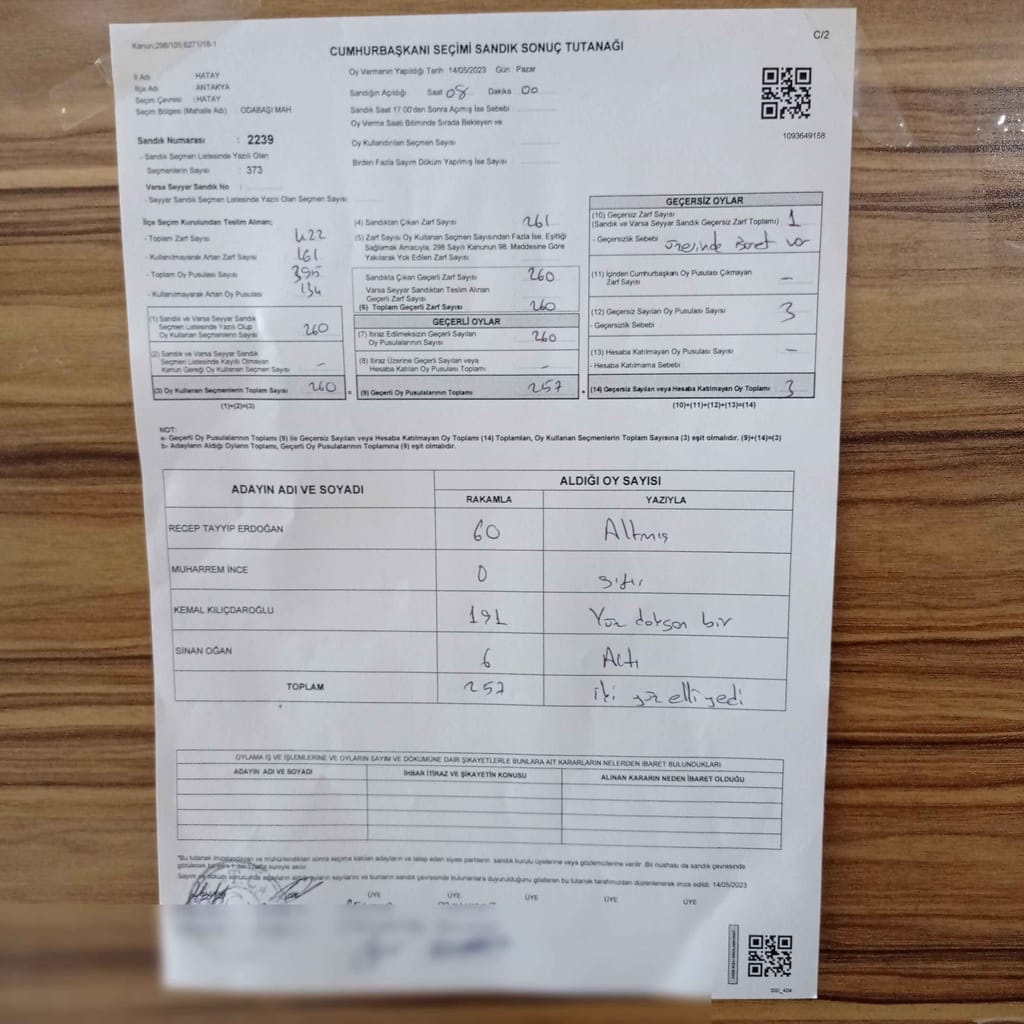 Kanun:298/105,6271/18-1
C/2
CUMHURBAŞKANI SEÇİMİ SANDIK SONUÇ TUTANAĞI
İl Adı HATAY
İlçe Adı ANTAKYA
Seçim Çevresi : HATAY
Seçim Bölgesi (Mahalle Adı) ODABAŞI MAH
Oy Vermenin Yapıldığı Tarih 14/05/2023 Gün : Pazar
Sandığın Açıldığı Saat 08 Dakika 00
Sandık Saat 17.00'den Sonra Açılmış İse Sebebi
Oy Verme Saati Bitiminde Sırada Bekleyen ve
Oy Kullandırılan Seçmen Sayısı
Birden Fazla Sayım Döküm Yapılmış İse Sayısı
1093649158
Sandık Numarası : 2239
- Sandık Seçmen Listesinde Yazılı Olan
Seçmenlerin Sayısı : 373
Varsa Seyyar Sandık No :
- Seyyar Sandık Seçmen Listesinde Yazılı Olan Seçmen Sayısı
İlçe Seçim Kurulundan Teslim Alınan;
- Toplam Zarf Sayısı 422
- Kullanılmayarak Artan Zarf Sayısı 161
- Toplam Oy Pusulası Sayısı 395
- Kullanılmayarak Artan Oy Pusulası 134
(1) Sandık ve Varsa Seyyar Sandık
Seçmen Listesinde Yazılı Olup
Oy Kullanan Seçmenlerin Sayısı 260
(2) Sandık ve Varsa Seyyar Sandık
Seçmen Listesinde Kayıtlı Olmayan
Kanun Gereği Oy Kullanan Seçmen Sayısı -
(3) Oy Kullanan Seçmenlerin Toplam Sayısı 260 =
(1)+(2)=(3)
(4) Sandıktan Çıkan Zarf Sayısı 261
(5) Zarf Sayısı Oy Kullanan Seçmen Sayısından Fazla İse, Eşitliği
Sağlamak Amacıyla, 298 Sayılı Kanunun 98. Maddesine Göre
Yakılarak Yok Edilen Zarf Sayısı
Sandıkta Çıkan Geçerli Zarf Sayısı 260
Varsa Seyyar Sandıktan Teslim Alınan
Geçerli Zarf Sayısı
(6) Toplam Geçerli Zarf Sayısı 260
GEÇERLİ OYLAR
(7) İtiraz Edilmeksizin Geçerli Sayılan
Oy Pusulalarının Sayısı 260
(8) İtiraz Üzerine Geçerli Sayılan veya
Hesaba Katılan Oy Pusulası Toplamı -
(9) Geçerli Oy Pusulalarının Toplamı 257 +
GEÇERSİZ OYLAR
(10) Geçersiz Zarf Sayısı
(Sandık ve Varsa Seyyar Sandık Geçersiz Zarf Toplamı) 1
- Geçersizlik Sebebi üzerinde işaret var
(11) İçinden Cumhurbaşkanı Oy Pusulası Çıkmayan
Zarf Sayısı -
(12) Geçersiz Sayılan Oy Pusulası Sayısı 3
- Geçersizlik Sebebi
(13) Hesaba Katılmayan Oy Pusulası Sayısı -
- Hesaba Katılmama Sebebi
(14) Geçersiz Sayılan veya Hesaba Katılmayan Oy Toplamı 3
(10)+(11)+(12)+(13)=(14)
NOT:
a- Geçerli Oy Pusulalarının Toplamı (9) ile Geçersiz Sayılan veya Hesaba Katılmayan Oy Toplamı (14) Toplamları, Oy Kullanan Seçmenlerin Toplam Sayısına (3) eşit olmalıdır. (9)+(14)=(3)
b- Adayların Aldığı Oyların Toplamı, Geçerli Oy Pusulalarının Toplamına (9) eşit olmalıdır.
ADAYIN ADI VE SOYADI ALDIĞI OY SAYISI
RAKAMLA YAZIYLA
RECEP TAYYİP ERDOĞAN 60 Altmış
MUHARREM İNCE 0 sıfır
KEMAL KILIÇDAROĞLU 191 Yüz doksan bir
SİNAN OĞAN 6 Altı
TOPLAM 257 iki yüz elli yedi
OYLAMA İŞ VE İŞLEMLERİNE VE OYLARIN SAYIM VE DÖKÜMÜNE DAİR ŞİKAYETLERLE BUNLARA AİT KARARLARIN NELERDEN İBARET BULUNDUKLARI
ADAYIN ADI VE SOYADI İHBAR İTİRAZ VE ŞİKAYETİN KONUSU ALINAN KARARIN NEDEN İBARET OLDUĞU
"Bu tutanak imzalandıktan ve mühürlendikten sonra seçime katılan adayların ve talep eden siyasi partilerin sandık kurulu üyelerine veya gözlemcilerine verilir. Bir nüshası da sandık çevresinde
görülecek bir yere hafta süreyle asılır.
Sayım ve döküm sonucunda adayların aldığı oyların sayılarını ve bunların sandık çevresinde bulunanlara duyurulduğunu gösteren bu tutanak tarafımızdan düzenlenerek imza edildi. 14/05/2023
ÜYE ÜYE ÜYE ÜYE ÜYE